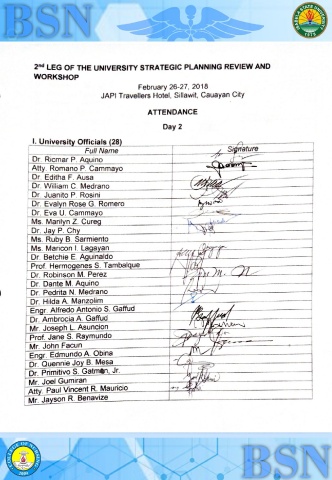 BSN
2nd LEG OF THE UNIVERSITY STRATEGIC PLANNING REVIEW AND
WORKSHOP
February 26-27, 2018
JAPI Travellers Hotel, Sillawit, Cauayan City
ATTENDANCE
Day 2
I. University Officials (28)
Full Name Signature
Dr. Ricmar P. Aquino
Atty. Romano P. Cammayo
Dr. Editha F. Ausa
Dr. William C. Medrano
Dr. Juanito P. Rosini
Dr. Evalyn Rose G. Romero
Dr. Eva U. Cammayo
Ms. Marilyn Z. Cureg
Dr. Jay P. Chy
Ms. Ruby B. Sarmiento
Ms. Maricon I. Lagayan
Dr. Betchie E. Aguinaldo
Prof. Hermogenes S. Tambalque
Dr. Robinson M. Perez
Dr. Dante M. Aquino
Dr. Pedrita N. Medrano
Dr. Hilda A. Manzolim
Engr. Alfredo Antonio S. Gaffud
Dr. Ambrocia A. Gaffud
Mr. Joseph L. Asuncion
Prof. Jane S. Raymundo
Mr. John Facun
Engr. Edmundo A. Obina
Dr. Quennie Joy B. Mesa
Dr. Primitivo S. Gatmen, Jr.
Mr. Joel Gumiran
Atty. Paul Vincent R. Mauricio
Mr. Jayson R. Benavize
BSN